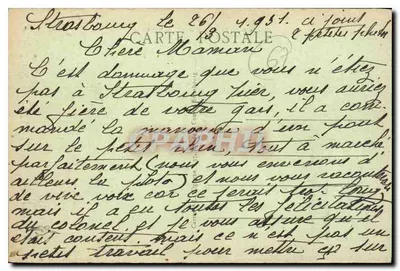 Strasbourg le 26/4.931. a jours
CARTE POSTALE
18 2 petites
Chère Maman
C'est dommage que vous n'étiez
pas à Strasbourg hier vous auriez
été fière de votre gars, il a com
mandé la manoeuvre d'un pont
sur le petit Rhin. tout a marché
parfaitement (nous vous enverrons d'
ailleurs la photo) et nous vous raconterons
de vive voix car ce serait trop long
mais il a eu toutes les félicitations
du colonel. et je vous assure qu'il
était content. mais ce n'est pas un
petit travail pour mettre ça sur